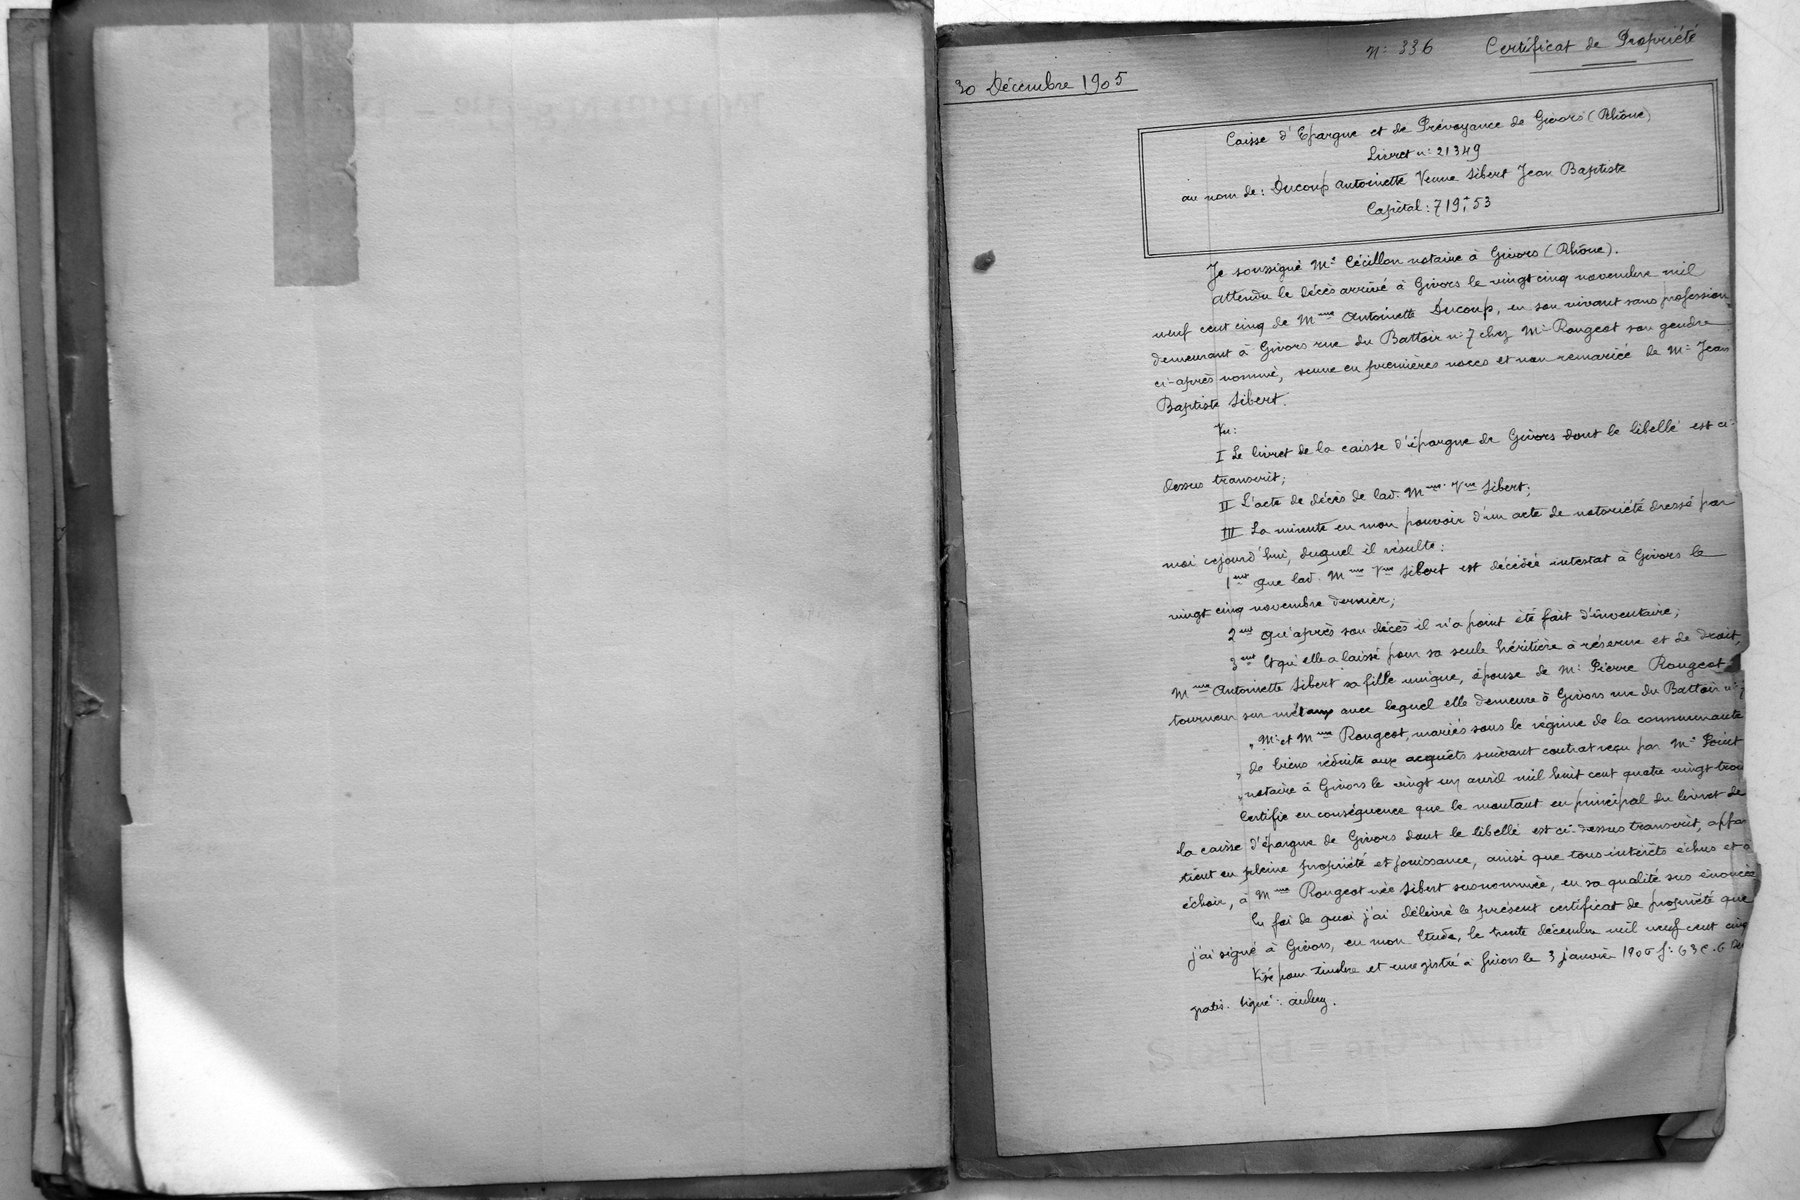 N: 336 Certificat de Propriété
30 Décembre 1905
Caisse d'Epargne et de Prévoyance de Givors (Rhône)
Livret n: 21349
au nom de: Ducoup Antoinette Veuve Sibert Jean Baptiste
Capital: 719f,53
Je soussigné Me Cécillon notaire à Givors (Rhône).
Attendu le décès arrivé à Givors le vingt cinq novembre mil
neuf cent cinq de Mme Antoinette Ducoup, en son vivant sans profession
demeurant à Givors rue du Battoir n: 7 chez Mr Rougeot son gendre
ci-après nommé, veuve en premières noces et non remariée de Mr Jean
Baptiste Sibert.
Vu:
I Le livret de la caisse d'épargne de Givors dont le libellé est ci-
dessus transcrit;
II L'acte de décès de lad. Mme Vve Sibert;
III La minute en mon pouvoir d'un acte de notoriété dressé par
moi cejourd'hui, duquel il résulte:
1ent Que lad. Mme Vve Sibert est décédée intestat à Givors le
vingt cinq novembre dernier;
2ent Qu'après son décès il n'a point été fait d'inventaire;
3ent Et qu'elle a laissé pour sa seule héritière à réserve et de droit,
Mme Antoinette Sibert sa fille unique, épouse de Mr Pierre Rougeot
tourneur sur métaux avec lequel elle demeure à Givors rue du Battoir n: 7
" Mr et Mme Rougeot, mariés sous le régime de la communauté
" de biens réduite aux acquêts suivant contrat reçu par Me Point
" notaire à Givors le vingt un avril mil huit cent quatre vingt trois
Certifie en conséquence que le montant en principal du livret de
la caisse d'épargne de Givors dont le libellé est ci-dessus transcrit, appar
tient en pleine propriété et jouissance, ainsi que tous intérêts échus et à
échoir, à Mme Rougeot née Sibert susnommée, en sa qualité sus énoncée
En foi de quoi j'ai délivré le présent certificat de propriété que
j'ai signé à Givors, en mon Etude, le trente décembre mil neuf cent cinq
Visé pour timbre et enregistré à Givors le 3 janvier 1906 f: 63 c. 6
gratis. Signé: Aubry.